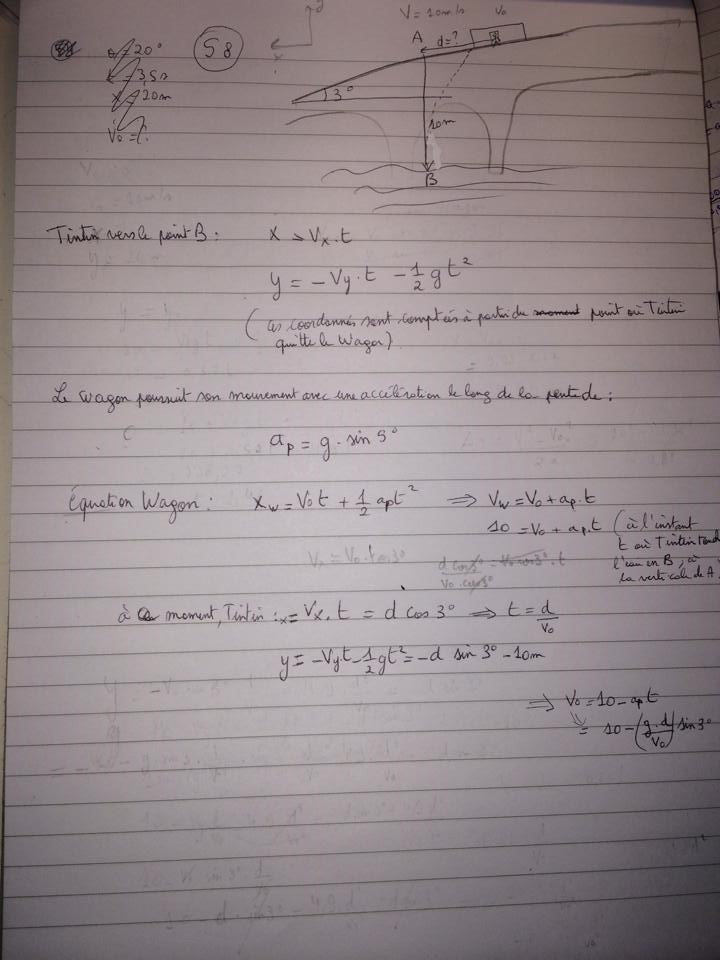 y
x
θ=20°
t=3,5s
x=20m
V₀=?
S8
V=10m/s
V₀
A
d=?
3°
10m
B
Tintin vers le point B : x → Vx.t
y = -Vy.t - 1/2 gt²
(ces coordonnés sont comptées à partir du point où Tintin
quitte le Wagon)
Le wagon poursuit son mouvement avec une accélération le long de la pente de :
ap = g . sin 5°
Équation Wagon : xw = V₀t + 1/2 apt² ⇒ Vw = V₀ + ap.t
10 = V₀ + ap.t (à l'instant
t où Tintin
l'eau en B, à
la verticale de A
Vx = V₀.cos3°
d cos3° / V₀.cos3° = V₀ cos3°.t
à ce moment, Tintin : x = Vx.t = d cos 3° ⇒ t = d/V₀
y = -Vyt - 1/2 gt² = -d sin 3° - 10m
⇒ V₀ = 10 - apt
= 10 - (g.d/V₀) sin 3°